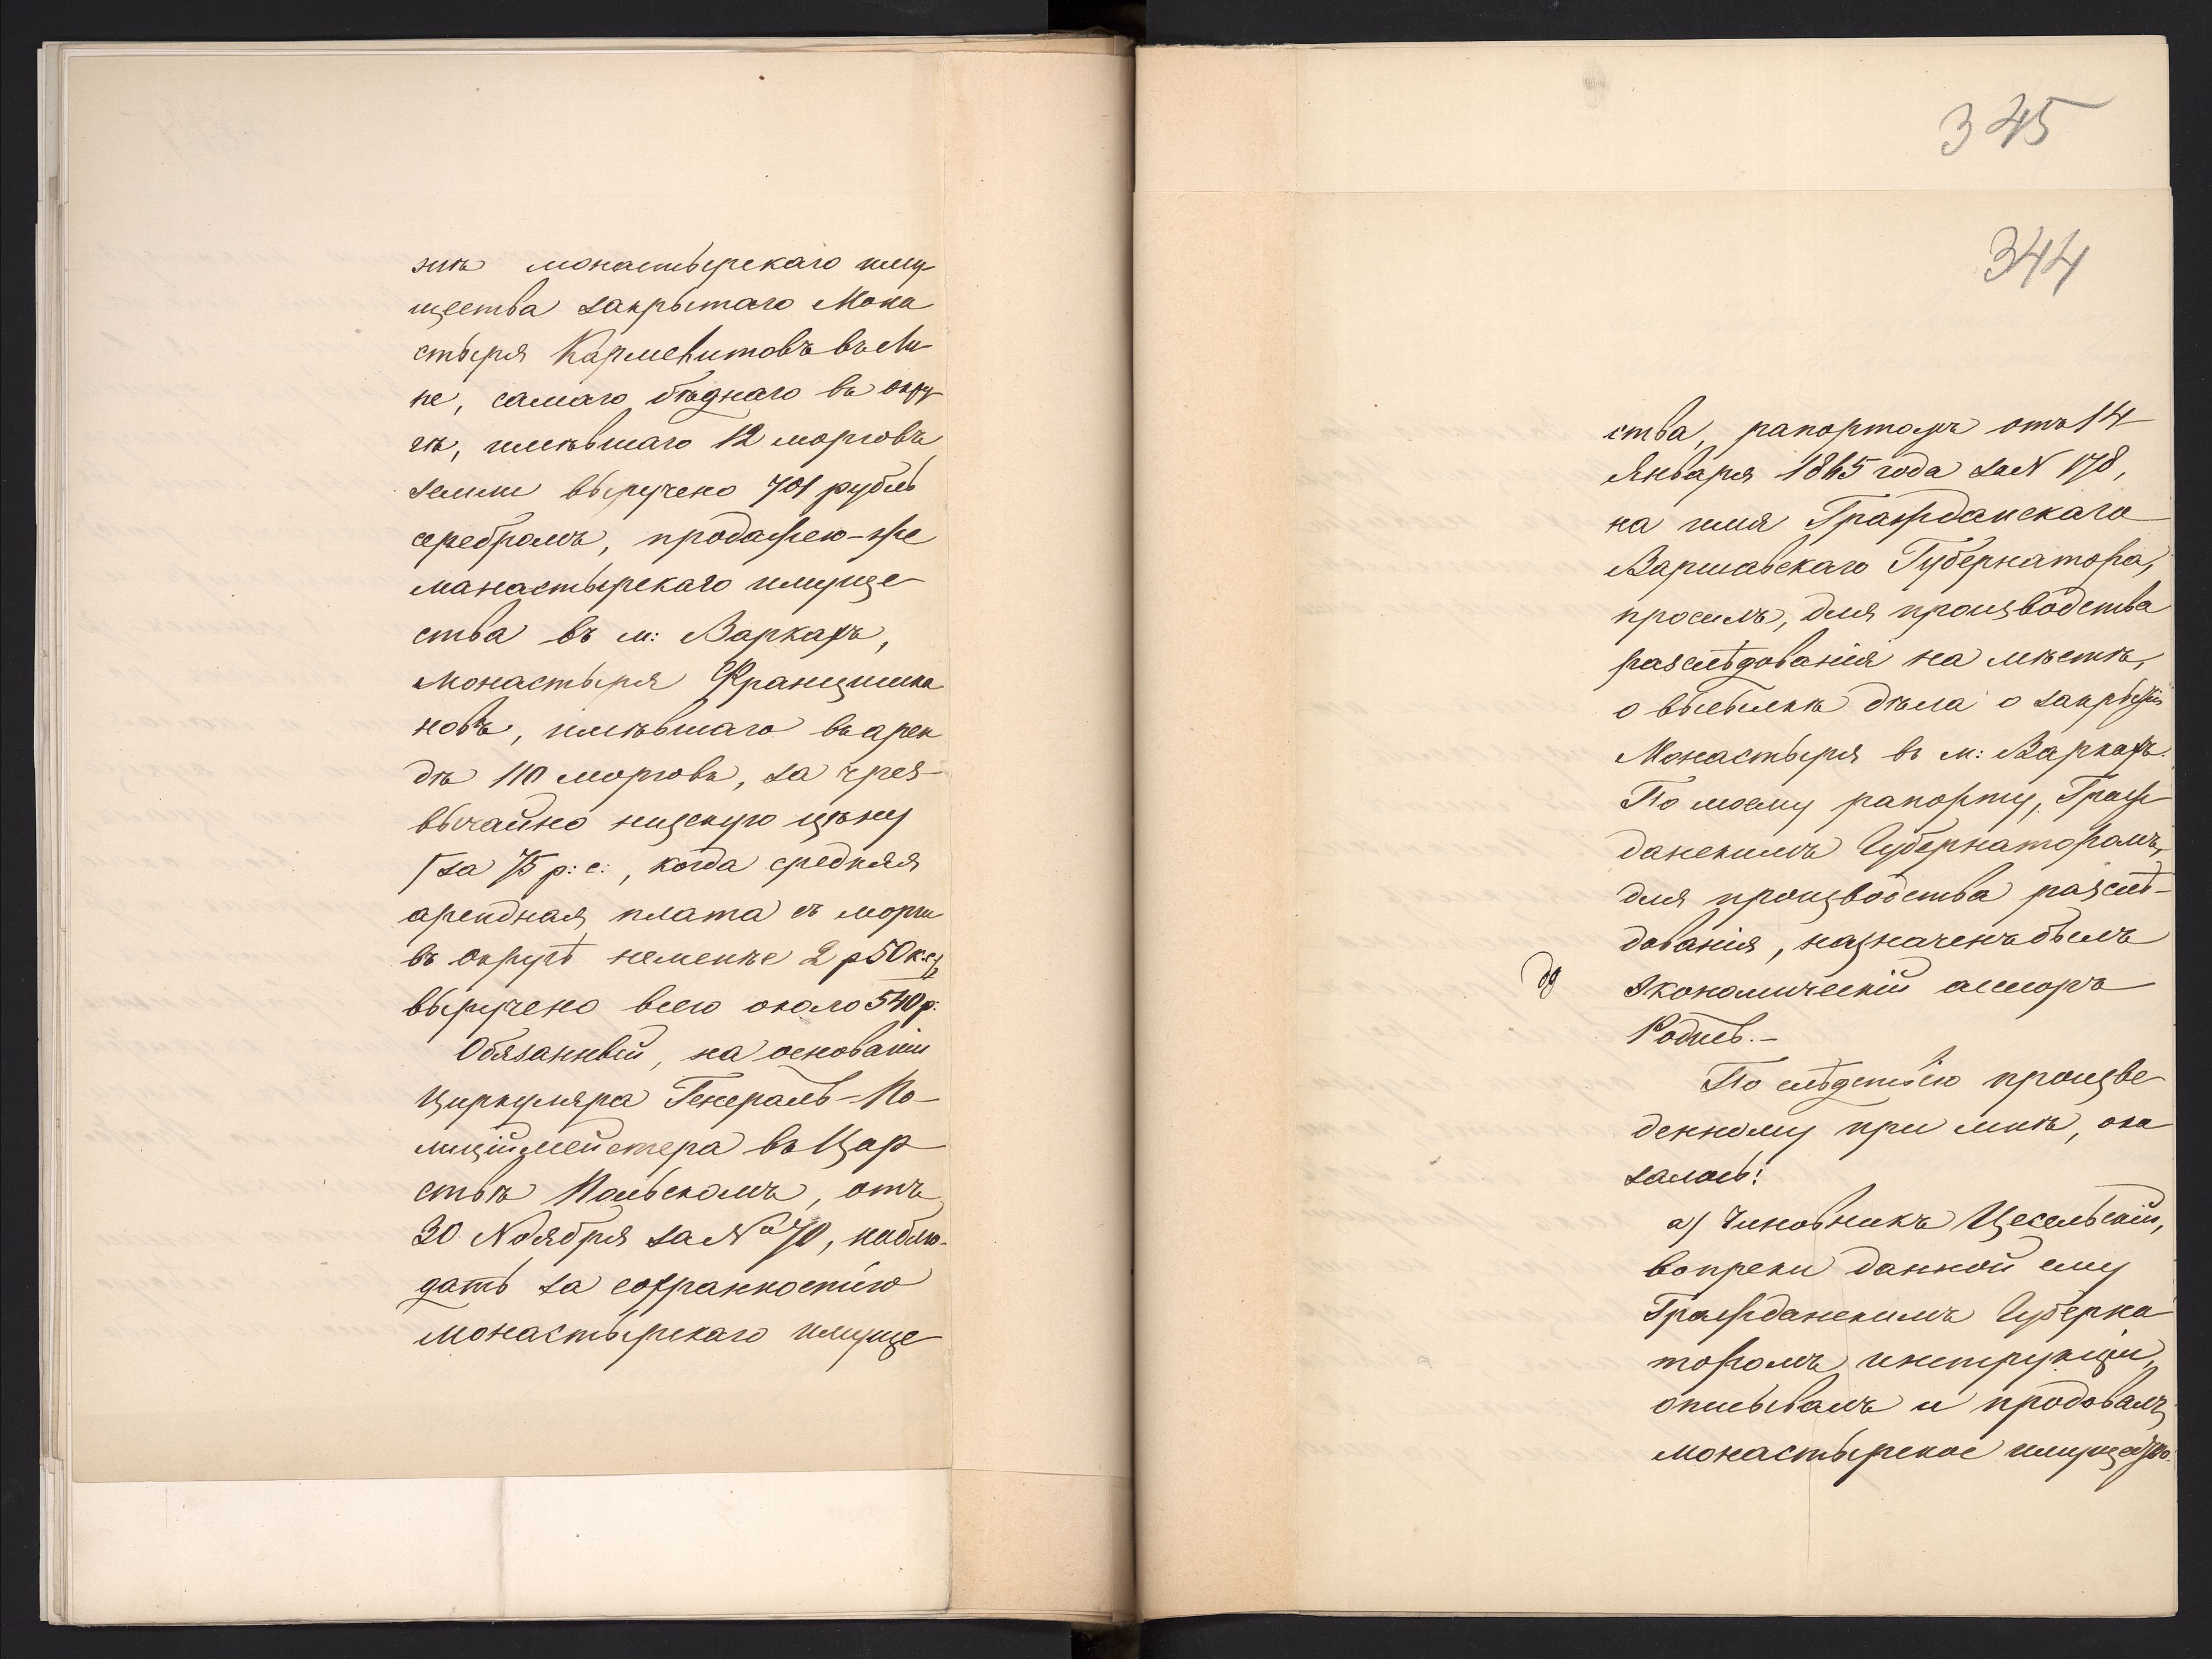 жѣ монастырскаго иму
щества закрытаго Мона
стыря Кармелитовъ въ Ли
пе, самаго бѣднаго въ окру
гѣ, имѣвшаго 12 морговъ
земли выручено 701 рубль
серебромъ, продажею-же
манастырскаго имуще
ства въ м: Варкахъ,
Монастыря Францишка
новъ, имѣвшаго въ арен
дѣ 110 морговъ, за чрез-
вычайно низскую цѣну
за 75 р: с:, когда средняя
арендная плата съ морги
въ округѣ неменѣе 2 р 50 к: с:
выручено всего около 540 р:
Обязанный, на основаніи
Циркуляра Генералъ-По-
лиціймейстера въ Цар
ствѣ Польскомъ, отъ
30 Ноября за № 70, наблю-
дать за сохранностію
монастырскаго имуще
345
344
ства, рапортомъ отъ 14
Января 1865 года за N 178,
на имя Гражданскаго
Варшавскаго Губернатора,
просилъ, для производства
разслѣдованія на мѣстѣ,
о высылкѣ дѣла о закрытіи
Монастыря въ м: Варкахъ.
По моему рапорту, Граж
данскимъ Губернаторомъ,
для производства разслѣ-
дованія, назначенъ былъ
экономическій ассесоръ
Родзь.-
По слѣдствію произве
денному при мнѣ, ока
залось:
а) Чиновникъ Цесельскій,
вопреки данной ему
Гражданскимъ Губерна
торомъ инструкціи,
описывалъ и продовалъ
монастырское имущество.